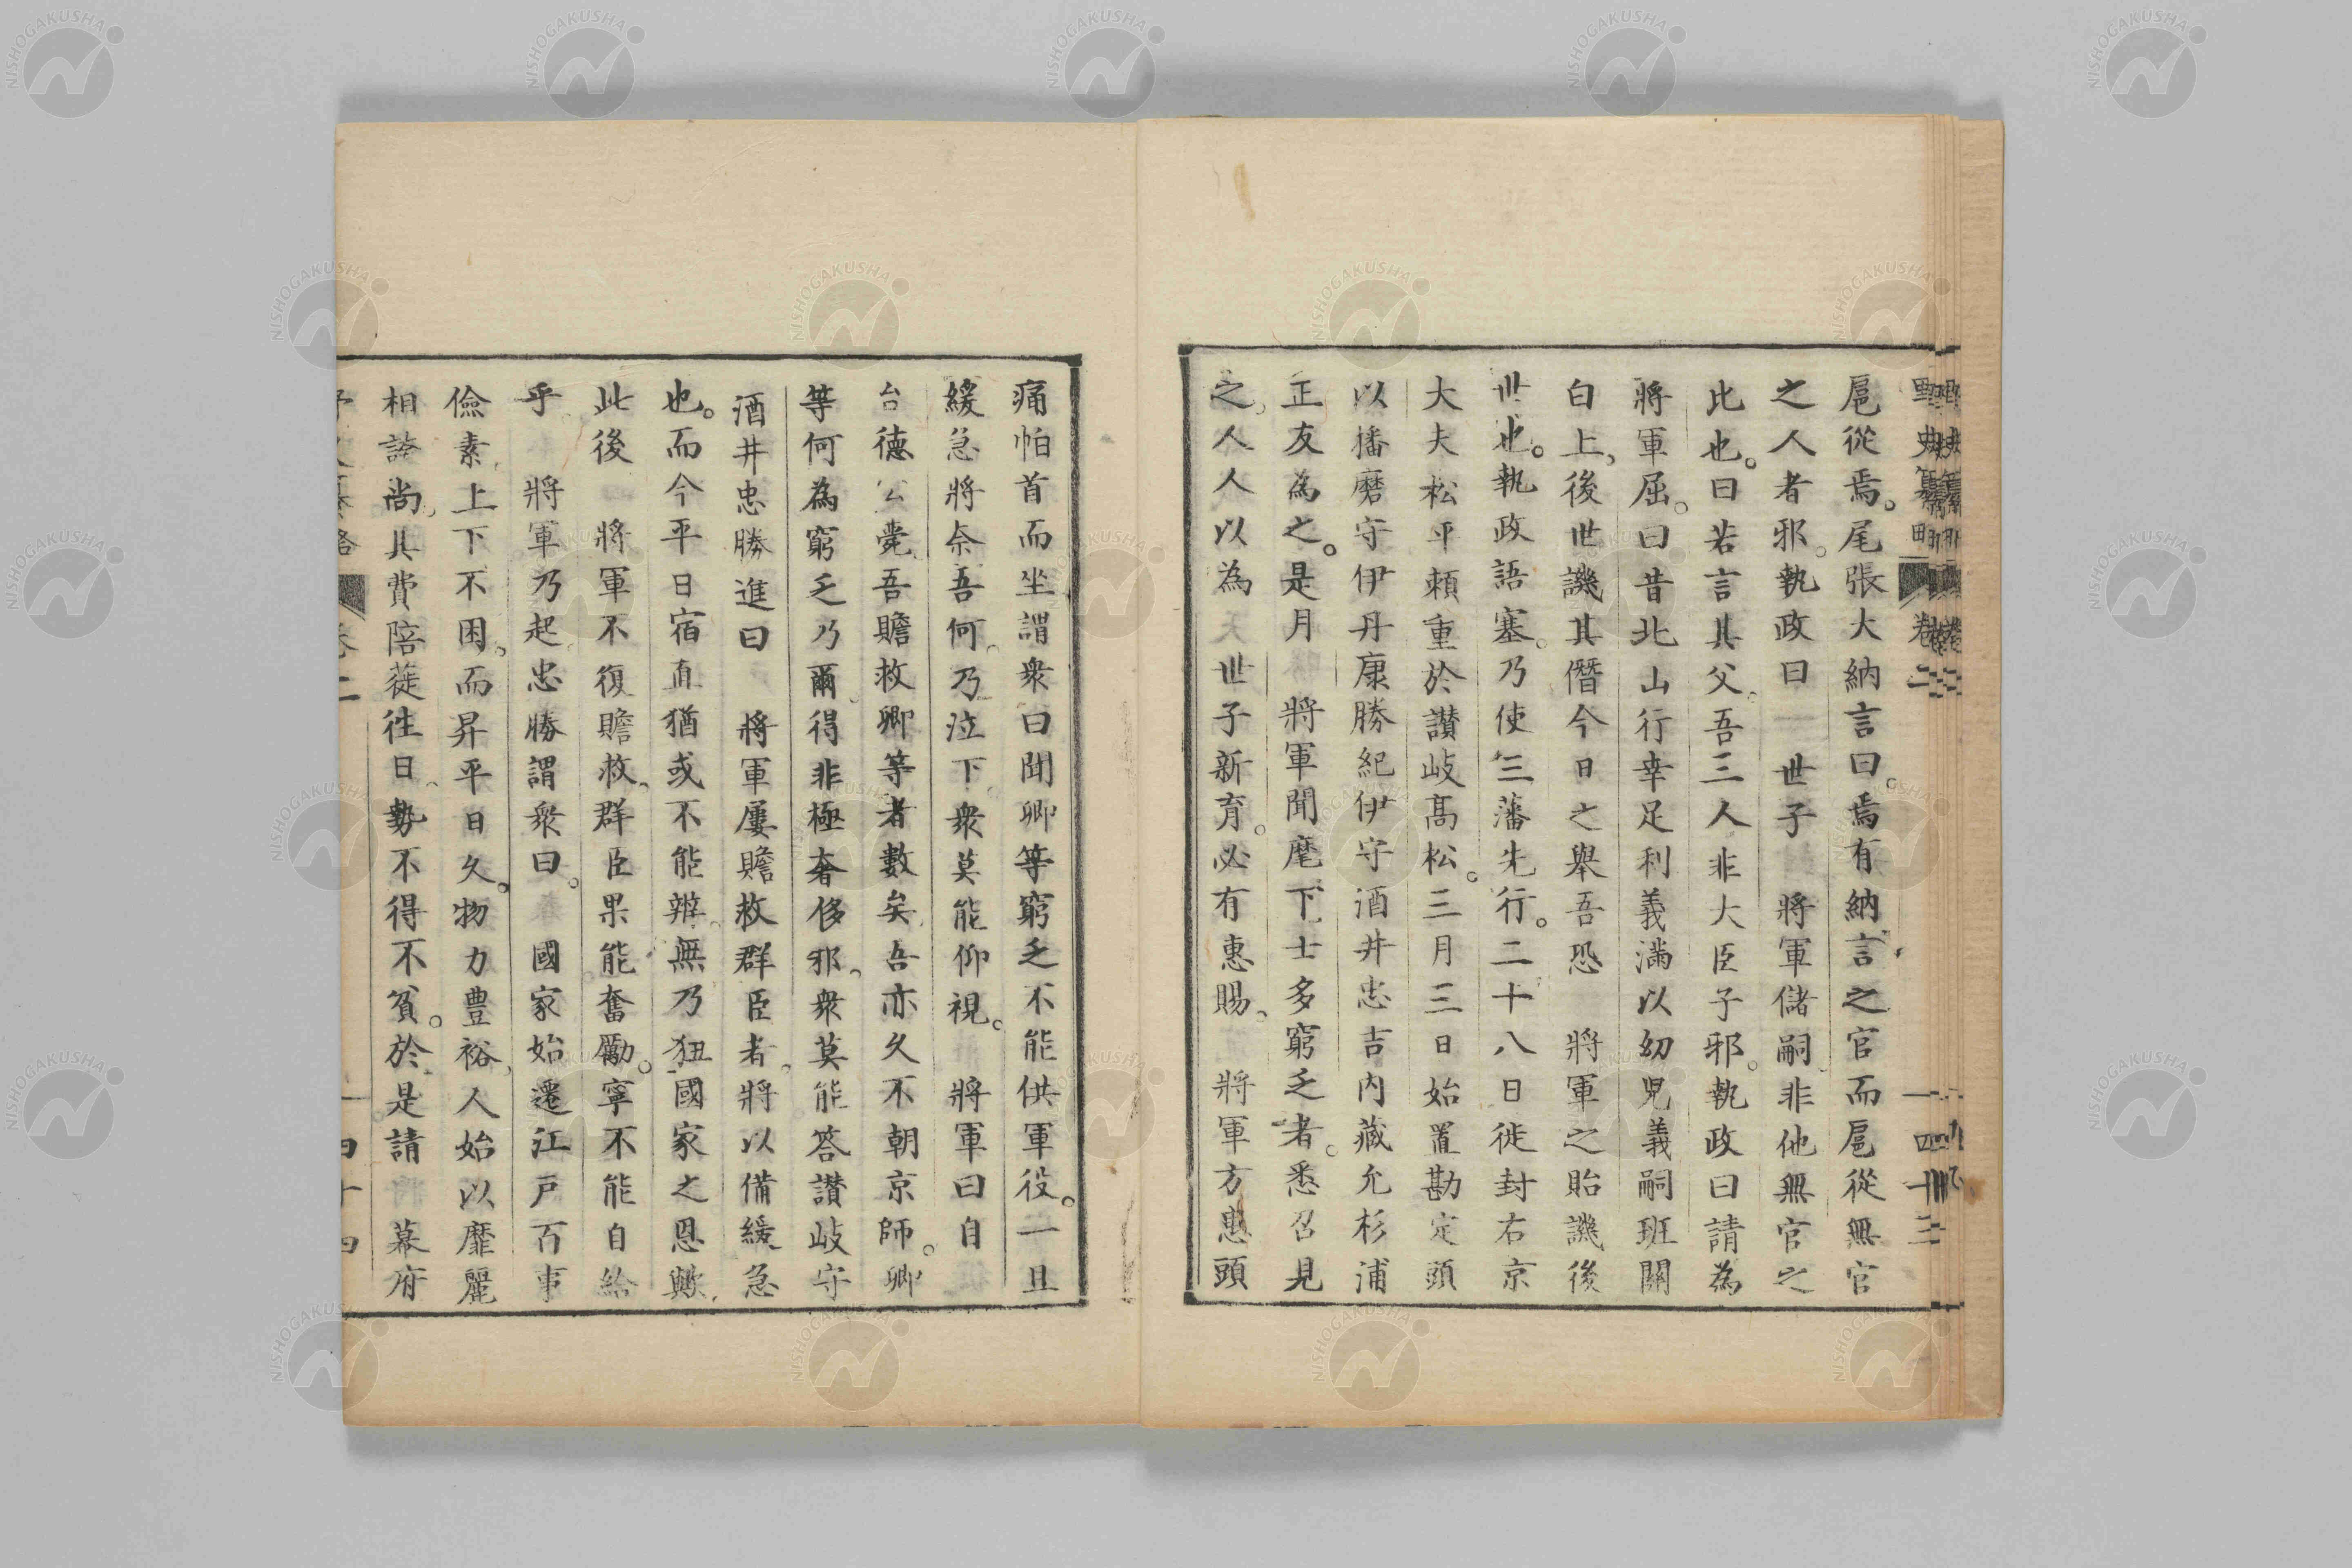 扈從焉。尾張大納言曰。焉有納言之官而扈從無官
之人者邪。執政曰　世子　將軍儲嗣非他無官之
比也。曰若言其父。吾三人非大臣子邪。執政曰請為
將軍屈。曰昔北山行幸足利義滿以幼兒義嗣班關
白上、後世譏其僭今日之舉吾恐　將軍之貽譏後
世也。執政語塞。乃使三藩先行。二十八日徙封右京
大夫松平賴重於讃岐髙松。三月三日始置勘定頭
以播磨守伊丹康勝紀伊守酒井忠吉内藏允杉浦
正友為之。是月　將軍聞麾下士多窮乏者。悉召見
之、人人以為　世子新育。必有惠賜、　將軍方惠頭
痛帕首而坐謂衆曰聞卿等窮乏不能供軍役。一旦
緩急將奈吾何。乃泣下。衆莫能仰視。　將軍曰自
台德公薨、吾贍救卿等者數矣吾亦久不朝京師。卿
等何為窮乏乃爾、得非極奢侈邪、衆莫能答讃岐守
酒井忠勝進曰　將軍屢贍救群臣者、將以備緩急
也。而今平日宿直猶或不能辨、無乃狃國家之恩歟、
此後　將軍不復贍救、群臣果能奮勵。寧不能自給
乎、　將軍乃起忠勝謂衆曰。　國家始遷江戸百事
儉素、上下不困。而昇平日久。物力豊裕、人始以靡麗
相誇尚、其費陪蓰徃日、勢不得不貧。於是請　幕府
野史纂略　卷二　四十三
四十四
NISHOGAKUSHA